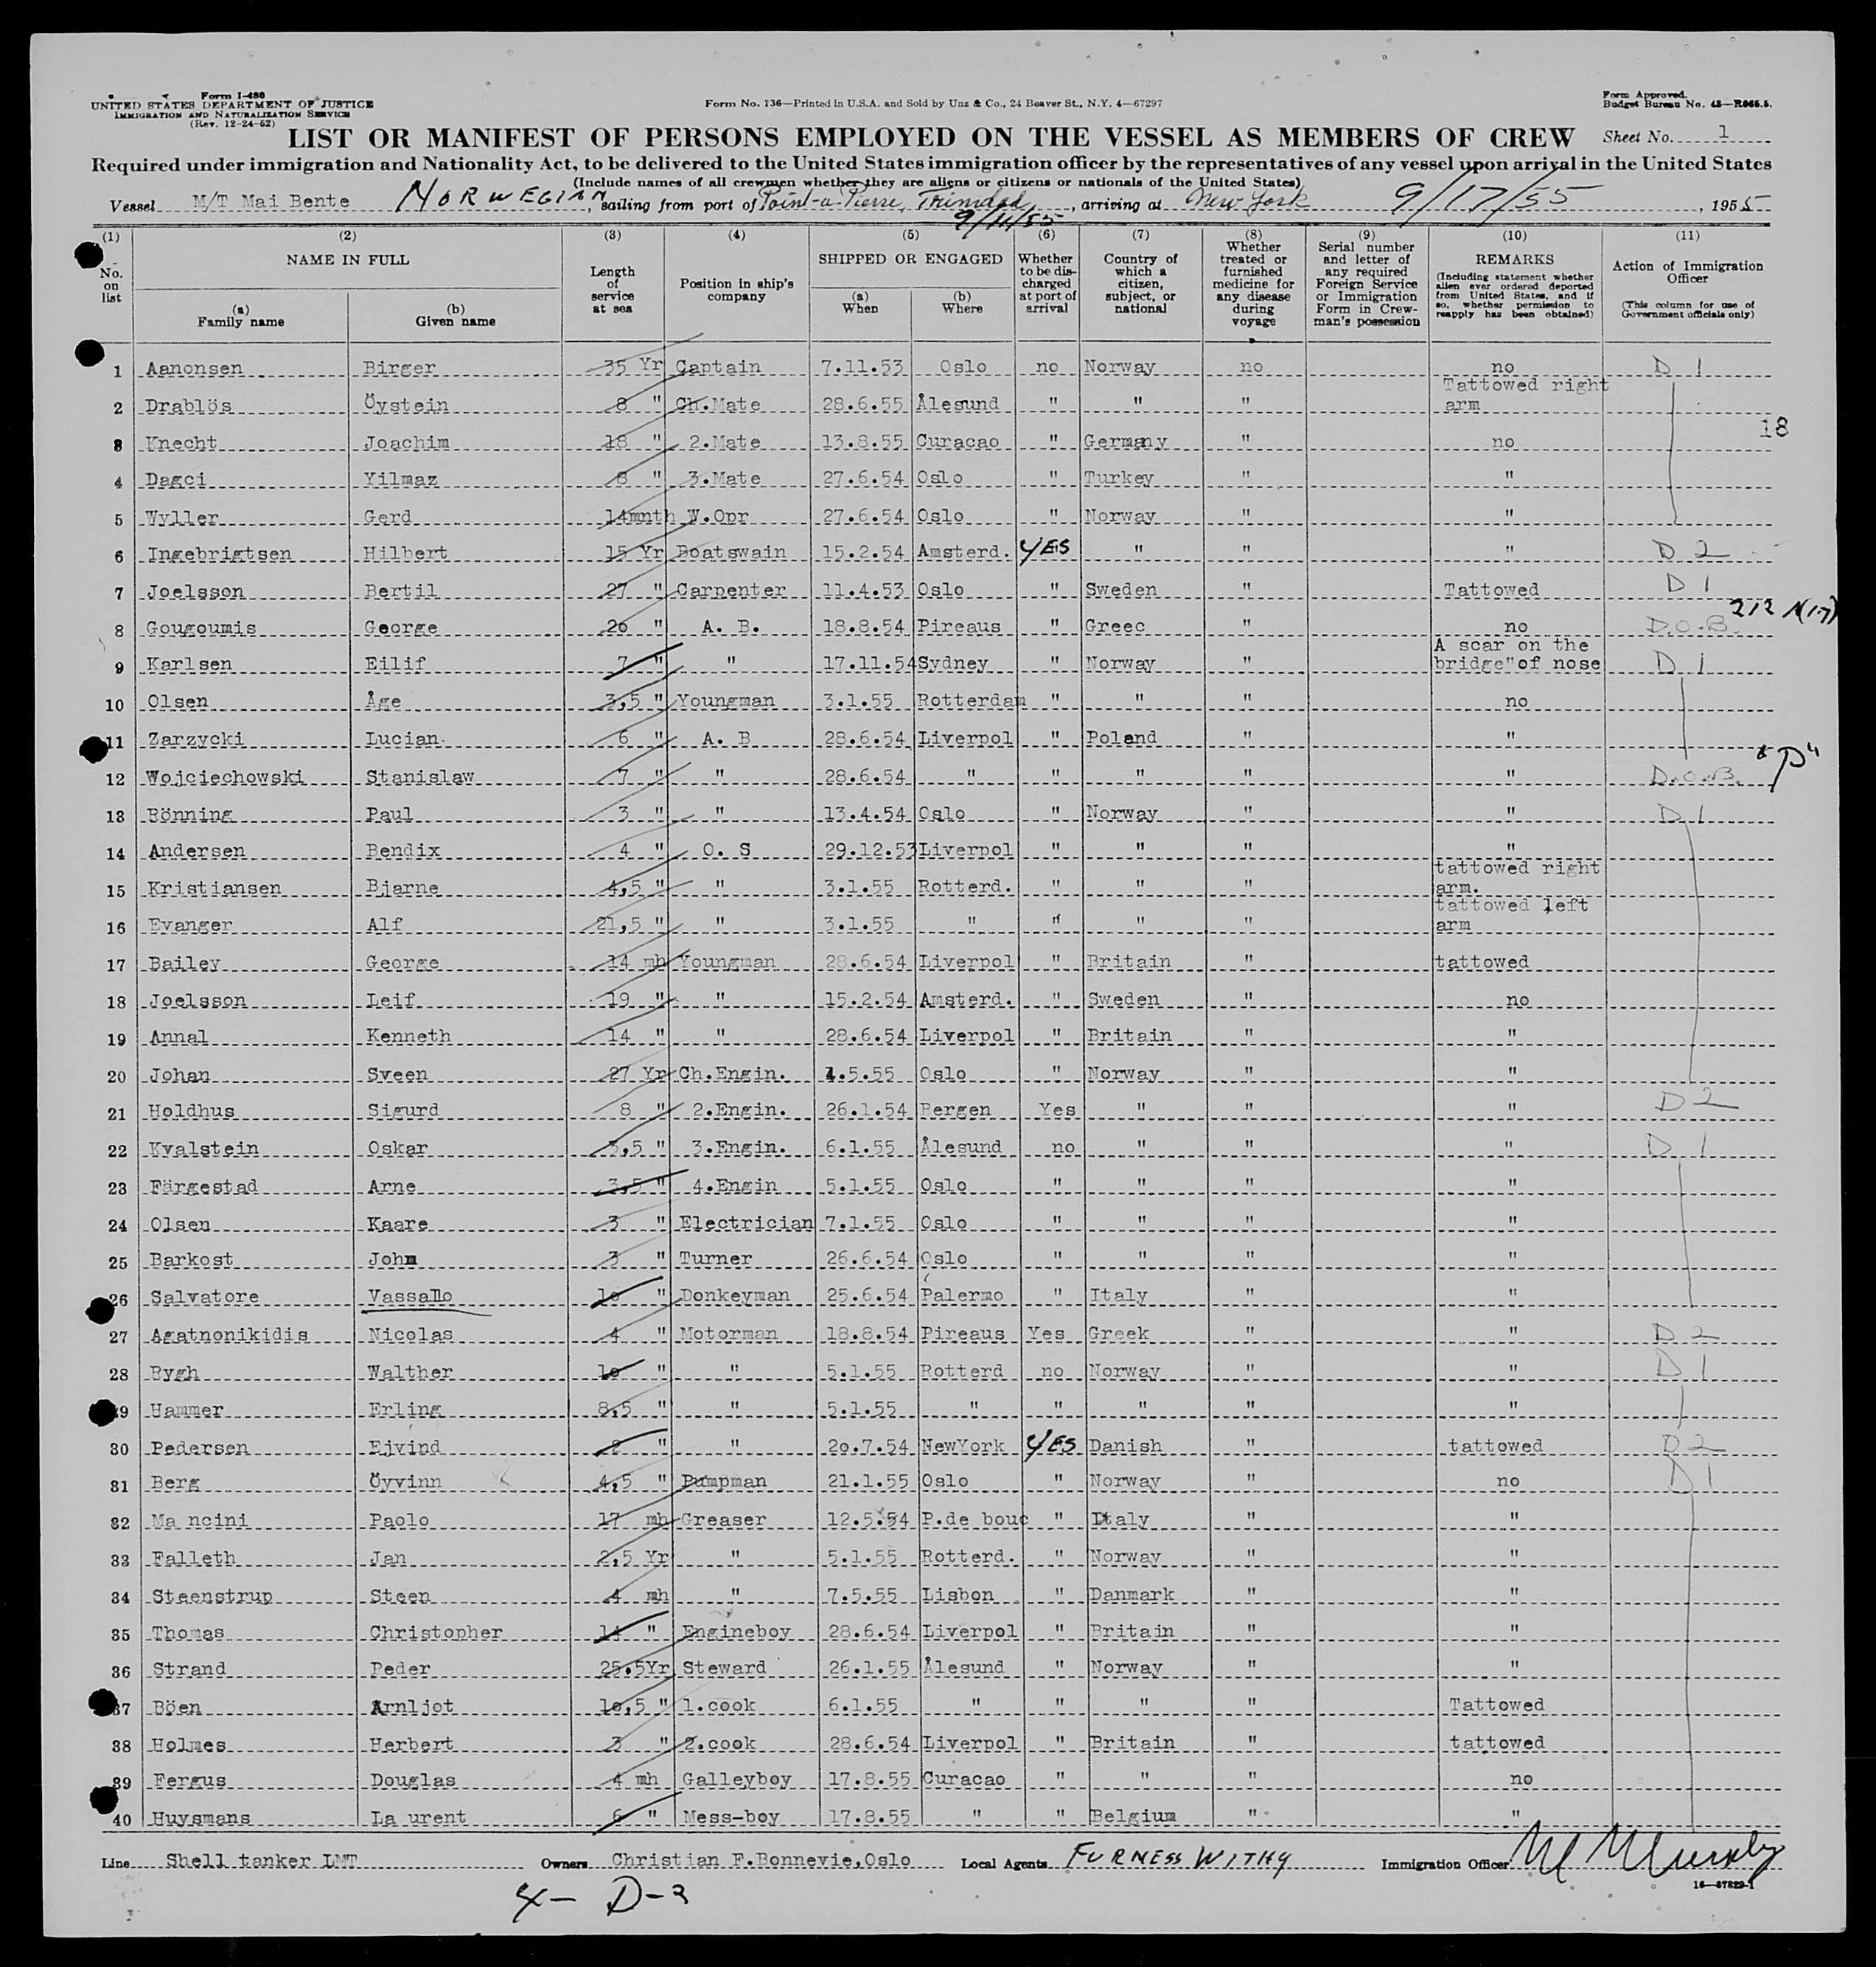 Form I-480
UNITED STATES DEPARTMENT OF JUSTICE
IMMIGRATION AND NATURALIZATION SERVICE
(Rev. 12-24-52)
Form No. 136—Printed in U.S.A. and Sold by Unz & Co., 24 Beaver St., N.Y. 4—67297
Form Approved.
Budget Bureau No. 43—R065.5.
LIST OR MANIFEST OF PERSONS EMPLOYED ON THE VESSEL AS MEMBERS OF CREW Sheet No. 1
Required under immigration and Nationality Act, to be delivered to the United States immigration officer by the representatives of any vessel upon arrival in the United States
(Include names of all crewmen whether they are aliens or citizens or nationals of the United States)
Vessel M/T Mai Bente NORWEGIAN, sailing from port of Point-a-Pierre, Trinidad, arriving at New York 9/17/55, 1955
9/11/55
(1) (2) (3) (4) (5) (6) (7) (8) (9) (10) (11)
No. on list NAME IN FULL Length of service at sea Position in ship's company SHIPPED OR ENGAGED Whether to be discharged at port of arrival Country of which a citizen, subject, or national Whether treated or furnished medicine for any disease during voyage Serial number and letter of any required Foreign Service or Immigration Form in Crewman's possession REMARKS (Including statement whether alien ever ordered deported from United States, and if so, whether permission to reapply has been obtained) Action of Immigration Officer (This column for use of Government officials only)
(a) Family name (b) Given name (a) When (b) Where
1 Aanonsen Birger 35 Yr Captain 7.11.53 Oslo no Norway no no D 1
2 Drablös Öystein 8 " Ch.Mate 28.6.55 Ålesund " " " Tattowed right arm
3 Knecht Joachim 18 " 2.Mate 13.8.55 Curacao " Germany " no 18
4 Dagci Yilmaz 8 " 3.Mate 27.6.54 Oslo " Turkey " "
5 Wyller Gerd 14mnth W.Opr 27.6.54 Oslo " Norway " "
6 Ingebrigtsen Hilbert 15 Yr Boatswain 15.2.54 Amsterd. YES " " " D 2
7 Joelsson Bertil 27 " Carpenter 11.4.53 Oslo " Sweden " Tattowed D 1
8 Gougoumis George 26 " A. B. 18.8.54 Pireaus " Greec " no D.O.B. 212 A(17)
9 Karlsen Eilif 7 " " 17.11.54 Sydney " Norway " A scar on the bridge"of nose D 1
10 Olsen Åge 3,5 " Youngman 3.1.55 Rotterdam " " " no
11 Zarzycki Lucian 6 " A. B 28.6.54 Liverpol " Poland " "
12 Wojciechowski Stanislaw 7 " " 28.6.54 " " " " " D.O.B. "P"
13 Rönning Paul 3 " " 13.4.54 Oslo " Norway " " D 1
14 Andersen Bendix 4 " O. S 29.12.53 Liverpol " " " "
15 Kristiansen Bjarne 4,5 " " 3.1.55 Rotterd. " " " tattowed right arm.
16 Evanger Alf 21,5 " " 3.1.55 " " " " tattowed left arm
17 Bailey George 14 mh Youngman 28.6.54 Liverpol " Britain " tattowed
18 Joelsson Leif 19 " " 15.2.54 Amsterd. " Sweden " no
19 Annal Kenneth 14 " " 28.6.54 Liverpol " Britain " "
20 Johan Sveen 27 Yr Ch.Engin. 1.5.55 Oslo " Norway " "
21 Holdhus Sigurd 8 " 2.Engin. 26.1.54 Bergen Yes " " " D 2
22 Kvalstein Oskar 3,5 " 3.Engin. 6.1.55 Ålesund no " " " D 1
23 Färgestad Arne 3,5 " 4.Engin 5.1.55 Oslo " " " "
24 Olsen Kaare 3 " Electrician 7.1.55 Oslo " " " "
25 Barkost John 3 " Turner 26.6.54 Oslo " " " "
26 Salvatore Vassallo 10 " Donkeyman 25.6.54 Palermo " Italy " "
27 Agatnonikidis Nicolas 4 " Motorman 18.8.54 Pireaus Yes Greek " " D 2
28 Rygh Walther 10 " " 5.1.55 Rotterd no Norway " " D 1
29 Hammer Erling 8,5 " " 5.1.55 " " " " "
30 Pedersen Ejvind 2 " " 20.7.54 NewYork YES Danish " tattowed D 2
31 Berg Öyvinn 4,5 " Pumpman 21.1.55 Oslo " Norway " no D 1
32 Ma ncini Paolo 17 mh Greaser 12.5.54 P.de bouc " Italy " "
33 Falleth Jan 2,5 Yr " 5.1.55 Rotterd. " Norway " "
34 Steenstrup Steen 4 mh " 7.5.55 Lisbon " Danmark " "
35 Thomas Christopher 14 " Engineboy 28.6.54 Liverpol " Britain " "
36 Strand Peder 25.5Yr Steward 26.1.55 Ålesund " Norway " "
37 Böen Arnljot 10,5 " 1.cook 6.1.55 " " " " Tattowed
38 Holmes Herbert 3 " 2.cook 28.6.54 Liverpol " Britain " tattowed
39 Fergus Douglas 4 mh Galleyboy 17.8.55 Curacao " " " no
40 Huysmans La urent 6 " Mess-boy 17.8.55 " " Belgium " "
Line Shell tanker LMT Owners Christian F.Bonnevie,Oslo Local Agents FURNESS WITHY Immigration Officer M Murphy
16—67829-1
4— D-2